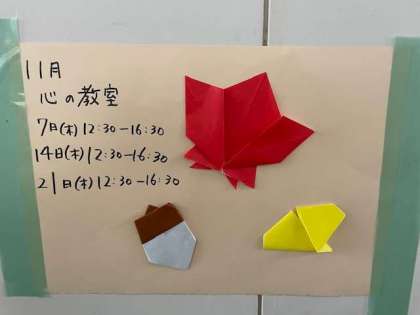 11月
心の教室
7日(木)12:30-16:30
14日(木)12:30-16:30
21日(木)12:30-16:30